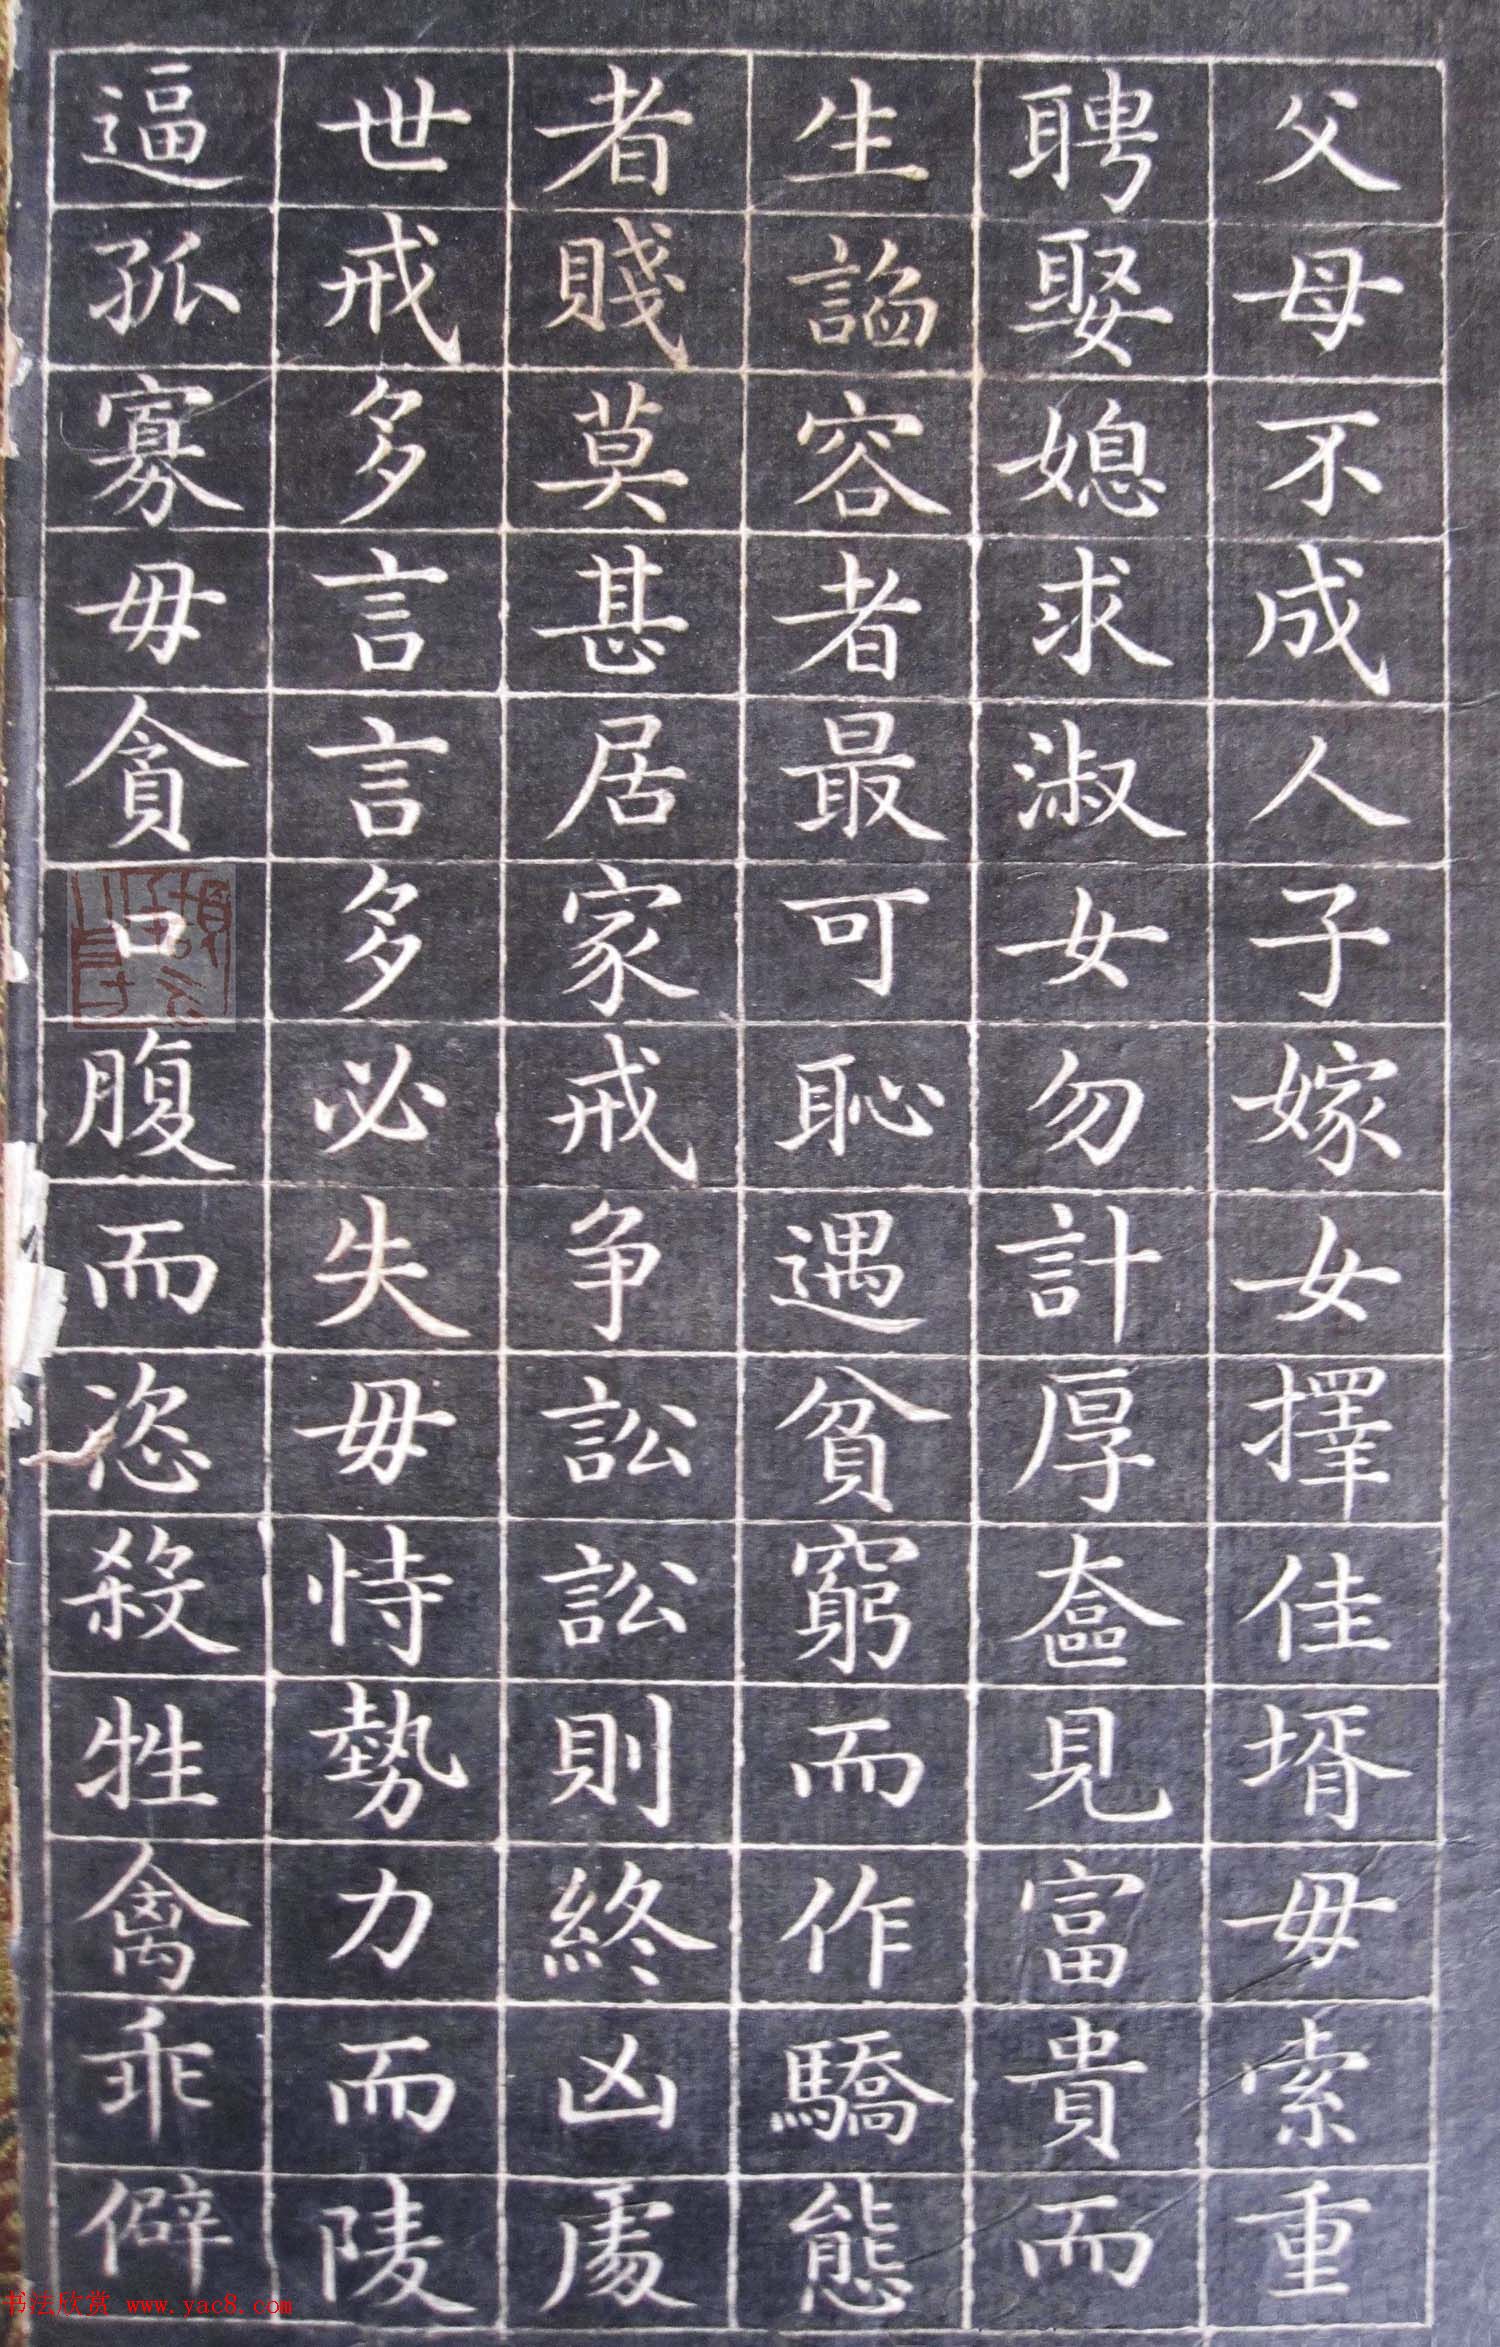 父母不成人子嫁女擇佳壻毋索重
聘娶媳求淑女勿計厚奩見富貴而
生諂容者最可恥遇貧窮而作驕態
者賤莫甚居家戒爭訟訟則終凶處
世戒多言言多必失毋恃勢力而陵
逼孤寡毋貪口腹而恣殺牲禽乖僻
书法欣赏 www.yac8.com